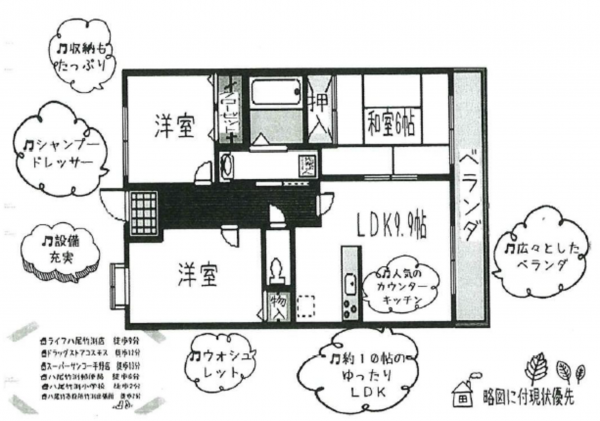 ♫収納も
たっぷり
♫シャンプー
ドレッサー
♫設備
充実
洋室
クローゼット
押入
和室6帖
ベランダ
LDK9.9帖
洋室
物入
♫人気の
カウンター
キッチン
♫広々とした
ベランダ
♫ウォシュ
レット
♫約10帖の
ゆったり
LDK
ライフ八尾竹渕店 徒歩9分
ドラッグストアコスモス 徒歩11分
スーパーサンコー平野店 徒歩15分
八尾竹渕郵便局 徒歩6分
八尾竹渕小学校 徒歩2分
略図に付現状優先